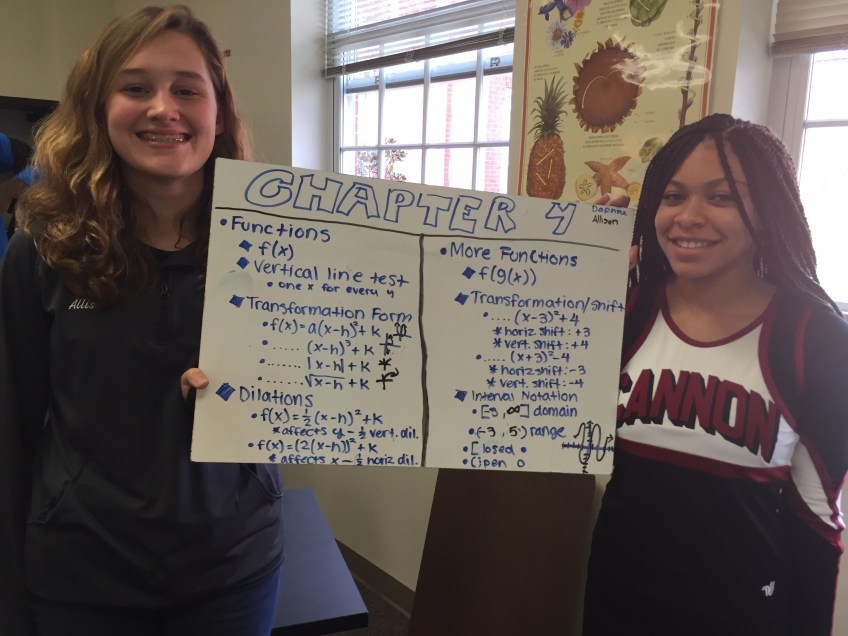 CHAPTER 4
Daphne
Allison
• Functions
◆ f(x)
◆ vertical line test
• one x for every y
◆ Transformation Form
• f(x) = a(x-h)²+k
• ...... (x-h)³+k
• ...... |x-h|+k
• ...... √x-h +k
◆ Dilations
• f(x)=½(x-h)²+k
*affects y - ½ vert. dil.
• f(x)=(2(x-h))²+k
* affects x - ½ horiz dil.
• More Functions
◆ f(g(x))
◆ Transformation/shift
• .... (x-3)²+4
* horiz shift: +3
* vert. shift: +4
• .... (x+3)²-4
* horiz shift: -3
* vert. shift: -4
◆ Interval Notation
∞] domain
• (-3, 5) range
• [losed •
• (ipen o
Allis
CANNON